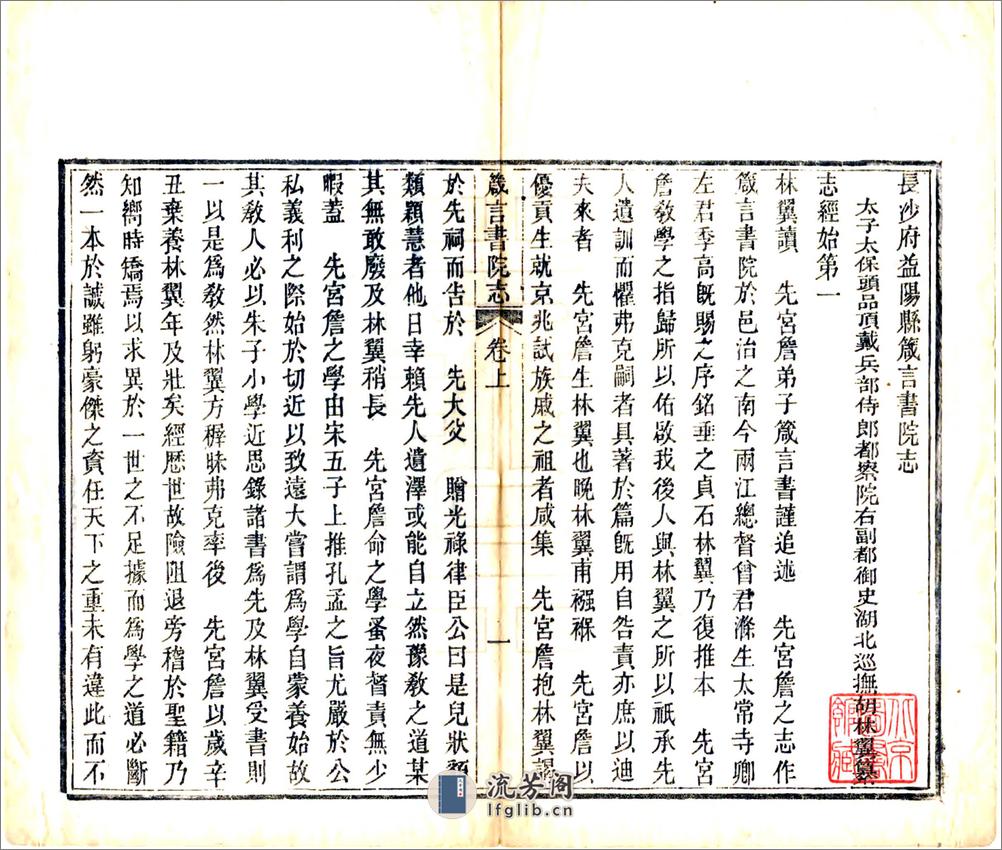 長沙府益陽縣箴言書院志
太子太保頭品頂戴兵部侍郎都察院右副都御史湖北巡撫胡林翼纂
志經始第一
林翼讀 先宮詹弟子箴言書謹追述 先宮詹之志作
箴言書院於邑治之南今兩江總督曾君滌生太常寺卿
左君季高既賜之序銘垂之貞石林翼乃復推本 先宮
詹教學之指歸所以佑啟我後人與林翼之所以祇承先
人遺訓而懼弗克嗣者具著於篇既用自咎責亦庶以迪
夫來者 先宮詹生林翼也晚林翼甫襁褓 先宮詹以
優貢生就京兆試族戚之祖者咸集 先宮詹抱林翼謁
箴言書院志 卷上 一
於先祠而告於 先大父 贈光祿律臣公曰是兒狀頗
類穎慧者他日幸賴先人遺澤或能自立然豫教之道某
其無敢廢及林翼稍長 先宮詹命之學蚤夜督責無少
暇蓋 先宮詹之學由宋五子上推孔孟之旨尤嚴於公
私義利之際始於切近以致遠大嘗謂為學自蒙養始故
其教人必以朱子小學近思錄諸書為先及林翼受書則
一以是為教然林翼方穉昧弗克率後 先宮詹以歲辛
丑棄養林翼年及壯矣經歷世故險阻退旁稽於聖籍乃
知嚮時矯焉以求異於一世之不足據而為學之道必斷
然一本於誠雖躬豪傑之資任天下之重未有違此而不
流芳阁
lfglib.cn